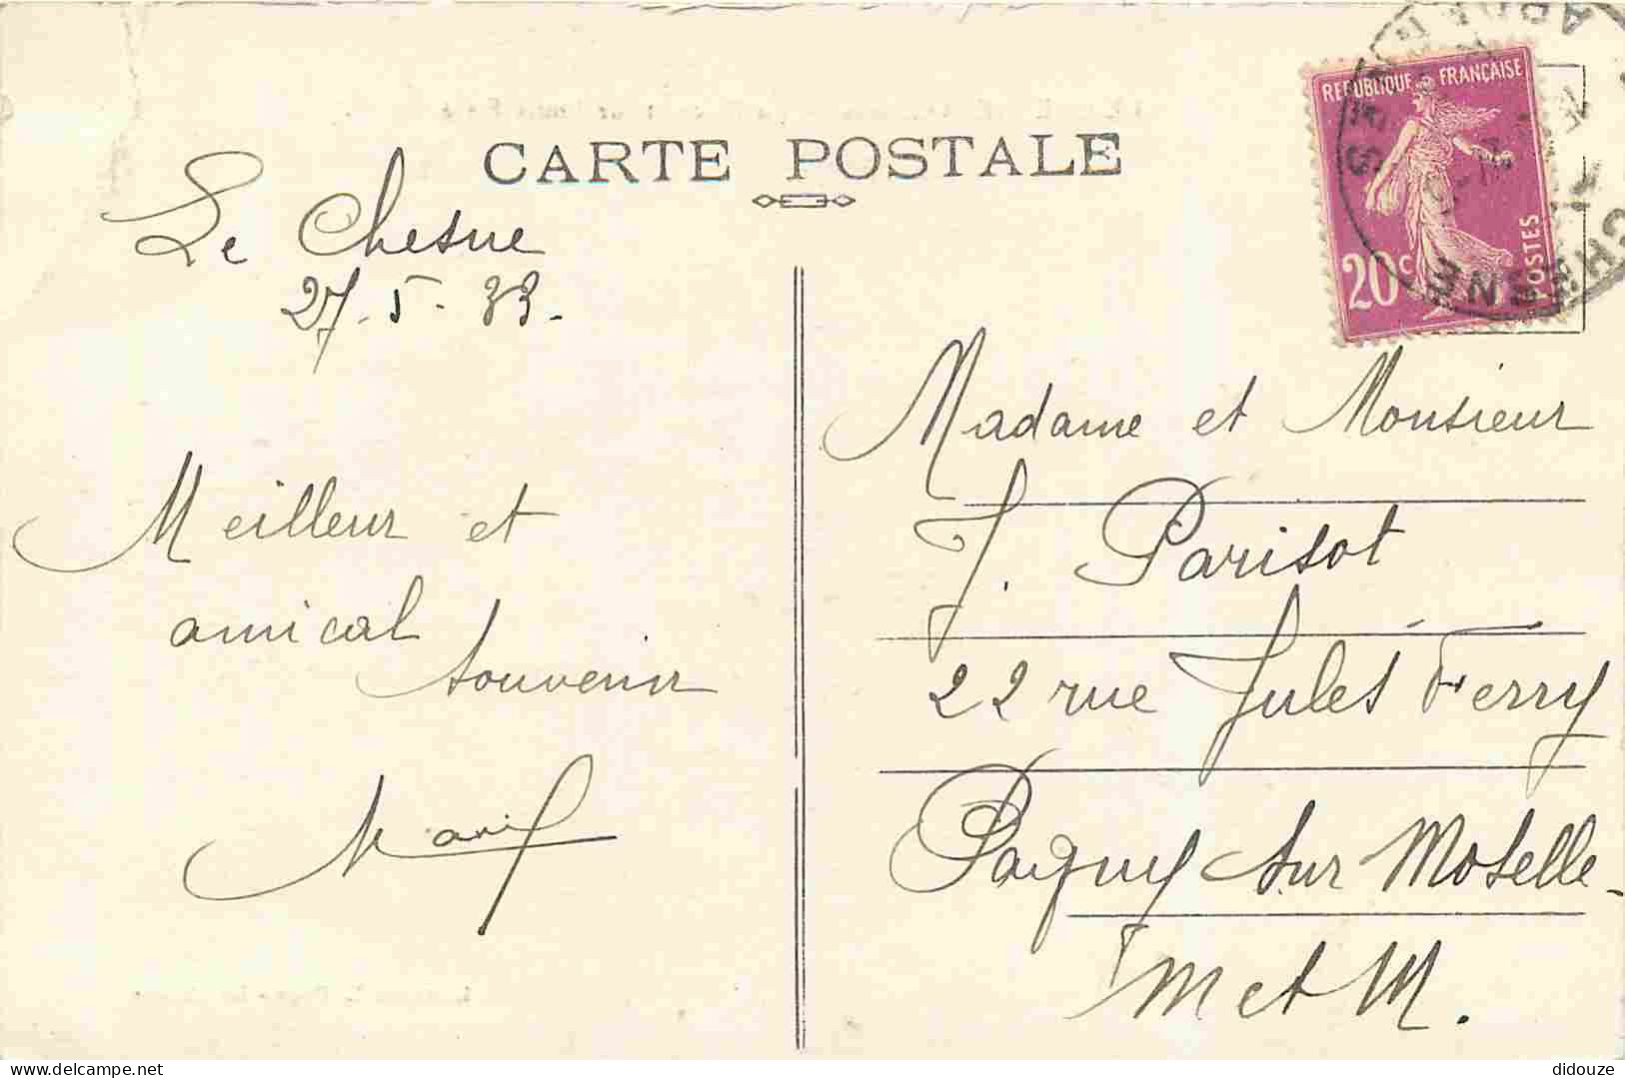 CARTE POSTALE
Le Chesne
27-5-33.
Meilleur et
amical
souvenir
REPUBLIQUE FRANÇAISE
20c
POSTES
Madame et Monsieur
J. Parisot
22 rue Jules Ferry
Pagny sur Moselle
M et M.
didouze